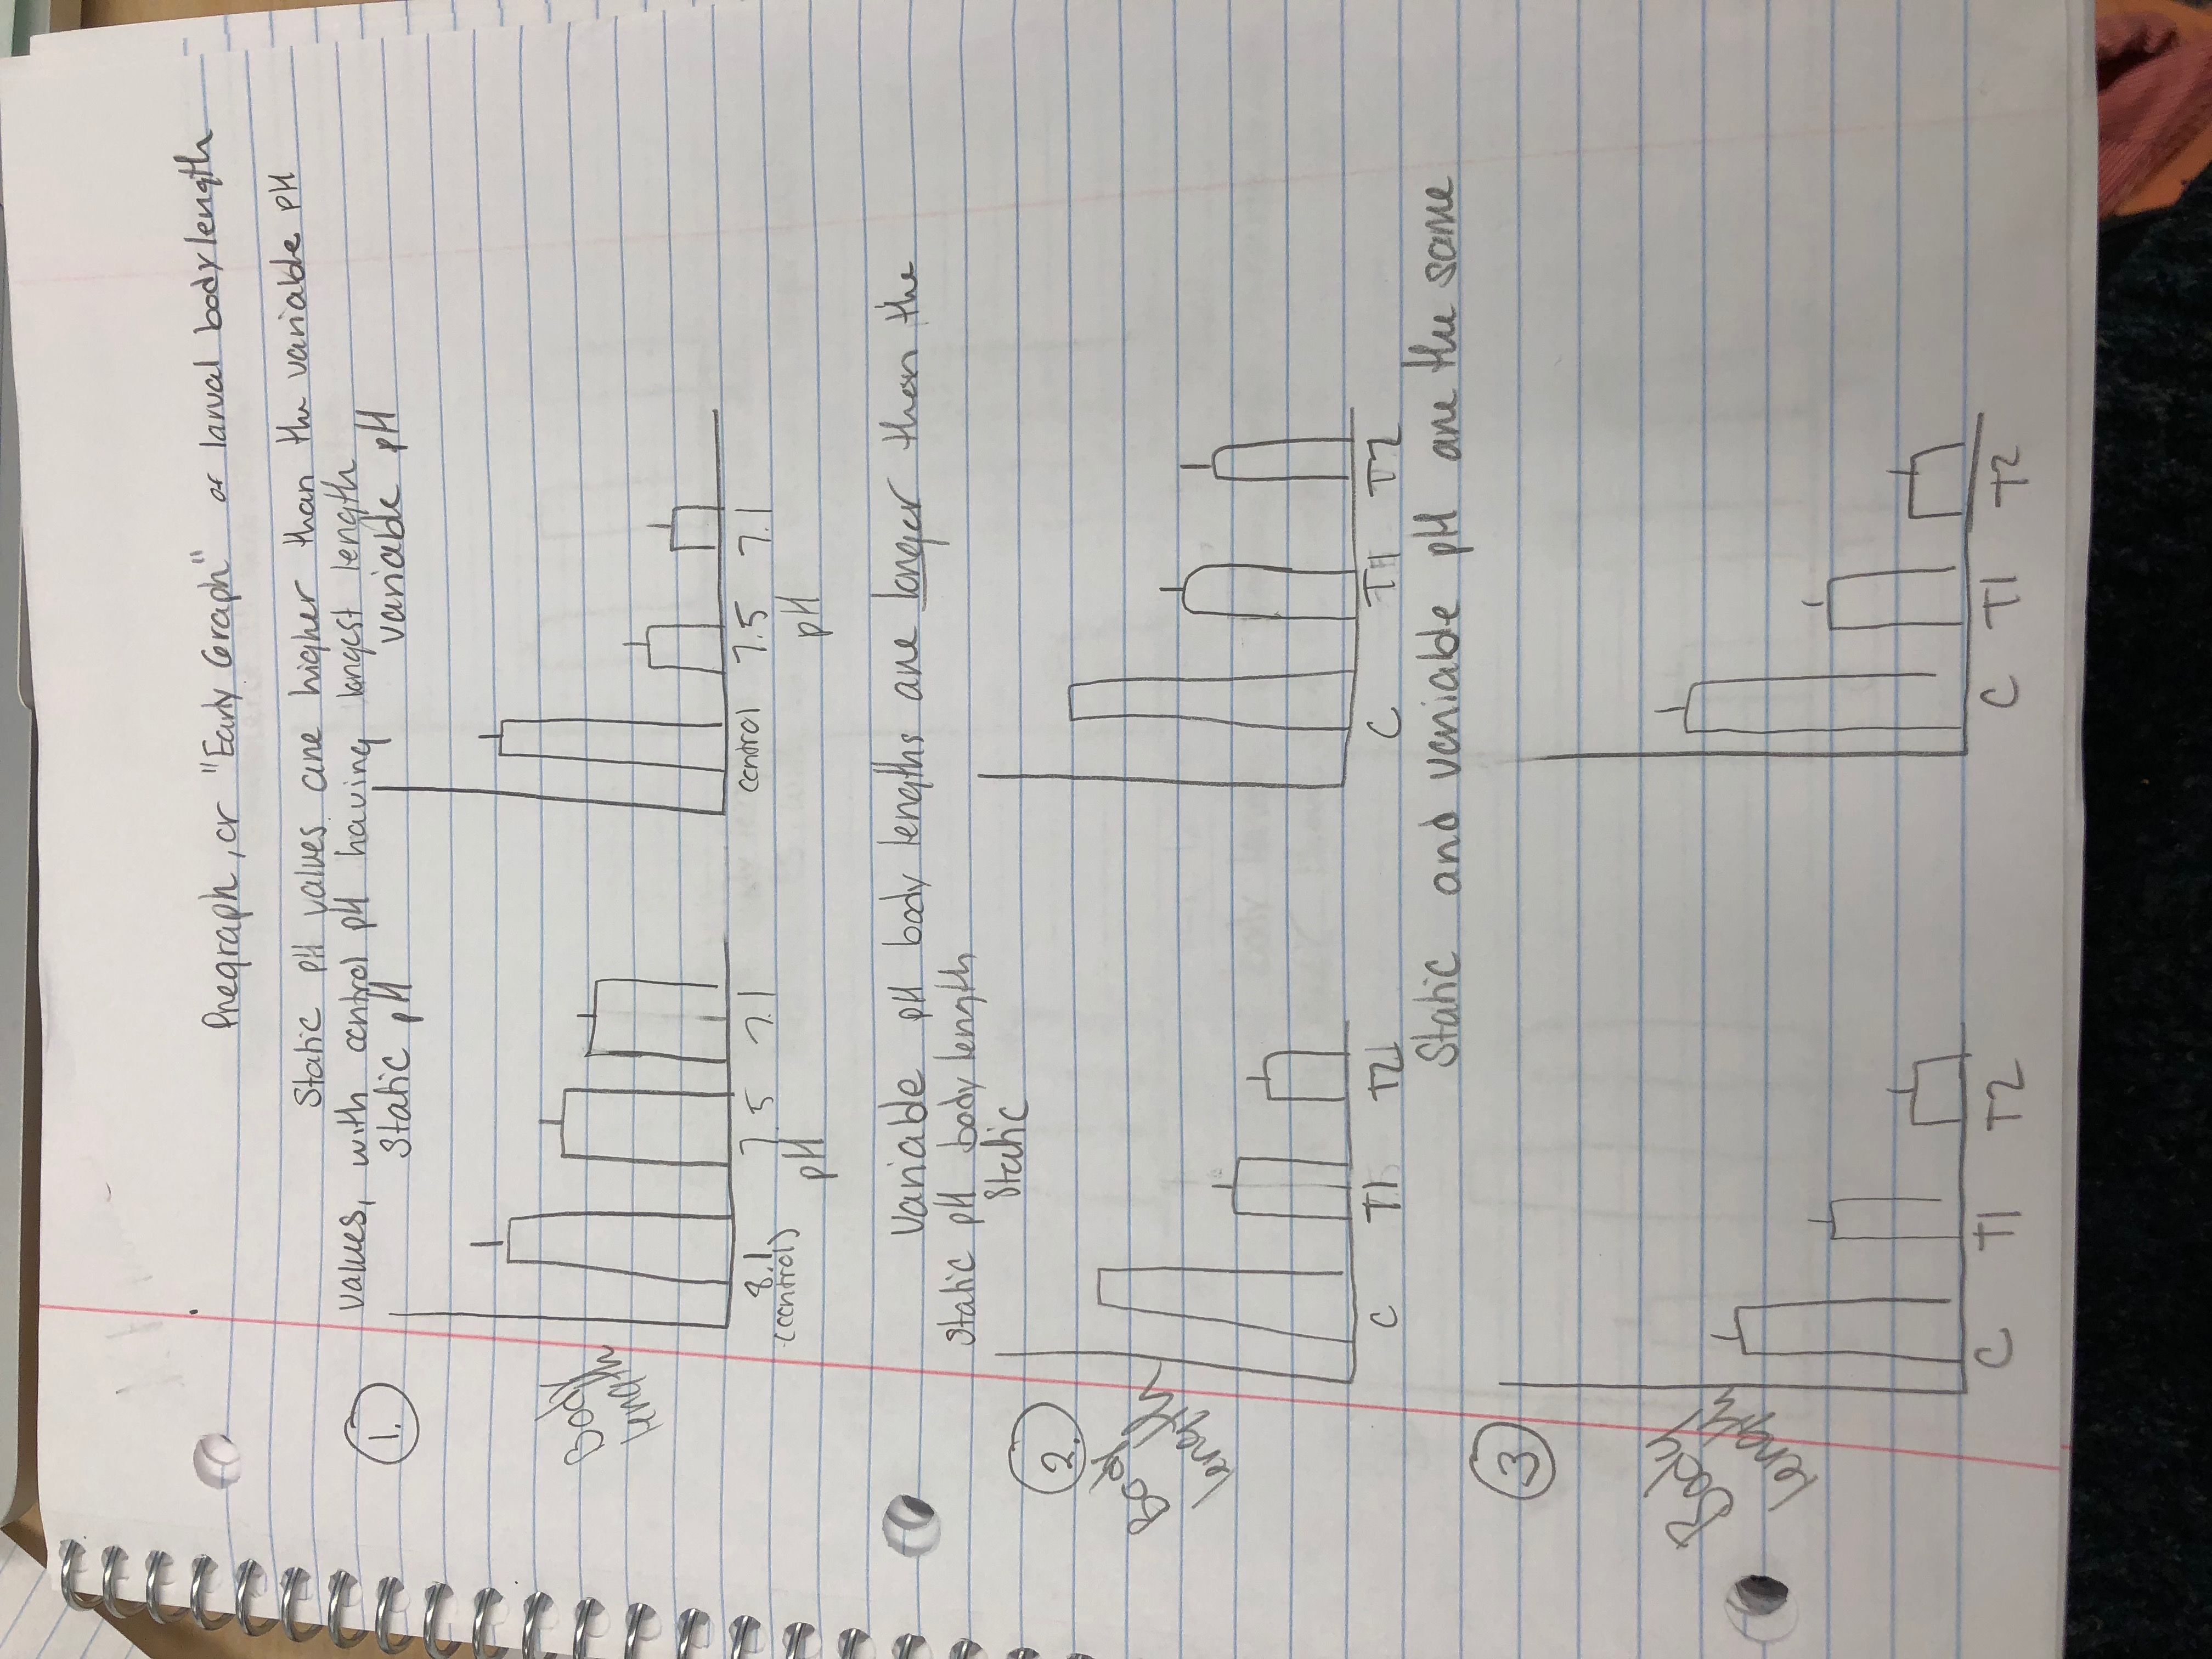 Pregraph, or "Early Graph" of larval body length
Static pH values are higher than the variable pH
values, with control pH having longest length
1.
Static pH
variable pH
Body
length
8.1
(control)
7.5
7.1
pH
control
7.5
7.1
pH
Variable pH body lengths are longer than the
static pH body length
2.
Static
Body
length
C
T1
T2
C
T1
T2
Static and variable pH are the same
3
Body
length
C
T1
T2
C
T1
T2